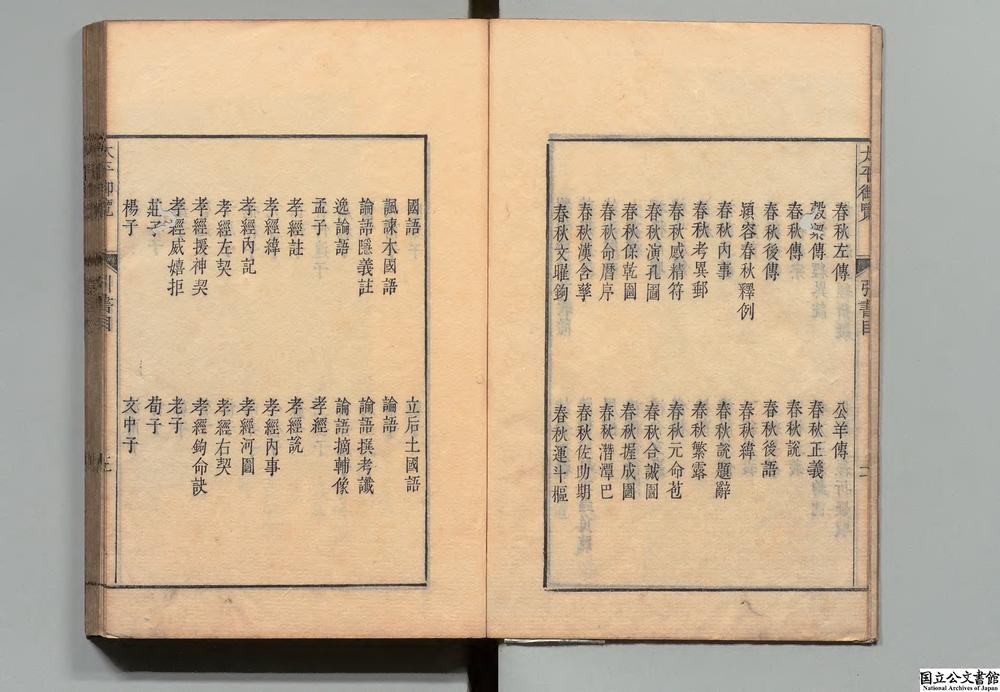 太平御覽 引書目
春秋左傳 公羊傳
穀梁傳 春秋正義
春秋傳 春秋說
春秋後傳 春秋後語
頴容春秋釋例 春秋緯
春秋內事 春秋說題辭
春秋考異郵 春秋繁露
春秋感精符 春秋元命苞
春秋演孔圖 春秋合誠圖
春秋保乾圖 春秋握成圖
春秋命曆序 春秋潛潭巴
春秋漢含孳 春秋佐助期
春秋文曜鉤 春秋運斗樞
國語 立后土國語
諷諫木國語 論語
論語隱義註 論語撰考讖
逸論語 論語摘輔像
孟子 孝經
孝經註 孝經說
孝經緯 孝經內事
孝經內記 孝經河圖
孝經左契 孝經右契
孝經援神契 孝經鉤命訣
孝經威嬉拒 老子
莊子 荀子
楊子 文中子
太平御覽 引書目
国立公文書館
National Archives of Japan